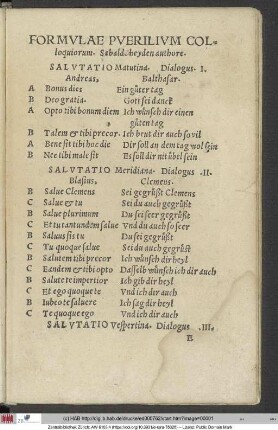 FORMVLAE PVERILIVM COL-
loquiorum. Sebald. heyden authore.
SALVTATIO Matutina. Dialogus. I.
Andreas, Balthasar.
A Bonus dies Ein güter tag
B Deo gratia. Gott sei danck
A Opto tibi bonum diem Ich wünsch dir einen
güten tag
B Talem & tibi precor. Ich beut dir auch so vil
A Bene sit tibi hoc die Dir soll an dem tag wol sein
B Nec tibi male sit Es soll dir nit übel sein
SALVTATIO Meridiana. Dialogus .II.
Blasius, Clemens.
B Salue Clemens Sei gegrüßt Clemens
C Salue & tu Sei du auch gegrüßt
B Salue plurimum Du sei seer gegrüßt
C Et tu tantundem salue Vnd du auch so seer
B Saluus sis tu Du sei gegrüßt
C Tu quoque salue Sei du auch gegrüßt
B Salutem tibi precor Ich wünsch dir heyl
C Eandem & tibi opto Dasselb wünsch ich dir auch
B Salute te impertior Ich gib dir heyl
C Et ego quoque te Vnd ich dir auch
B Iubeo te saluere Ich sag dir heyl
C Te quoque ego Vnd ich dir auch
SALVTATIO Vespertina. Dialogus .III.
E